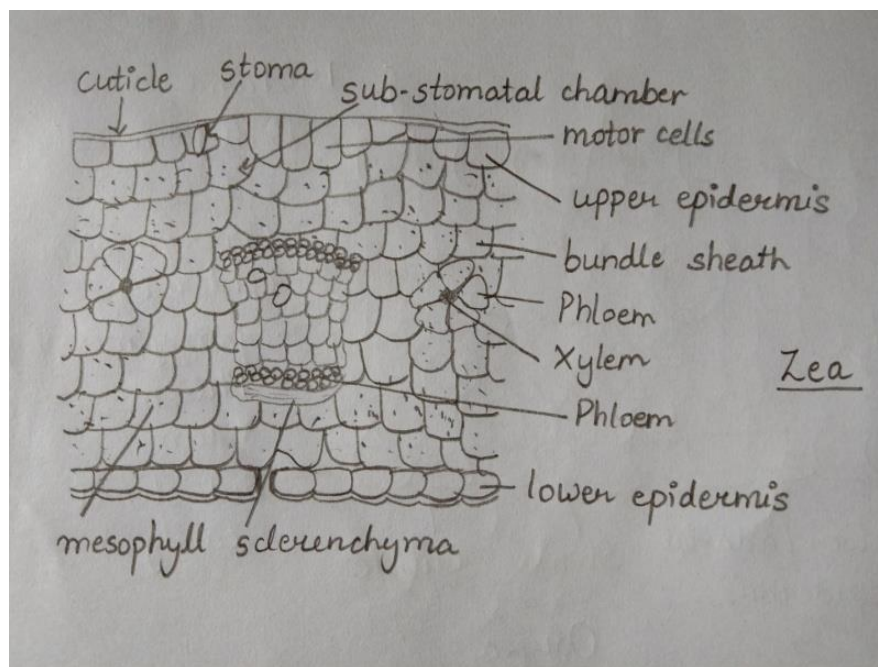 cuticle
stoma
sub-stomatal chamber
motor cells
upper epidermis
bundle sheath
Phloem
Xylem
Zea
Phloem
lower epidermis
mesophyll sclerenchyma